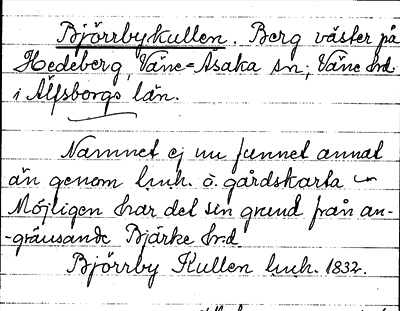 Björrbykullen. Berg väster på
Hedeberg, Väne-Åsaka sn; Väne hd.
i Älfsborgs län.
Namnet ej nu funnet annat
än genom lmh. o. gårdskarta
Möjligen har det sin grund från an-
-gränsande Bjärke hd.
Björrby Kullen lmh. 1832.